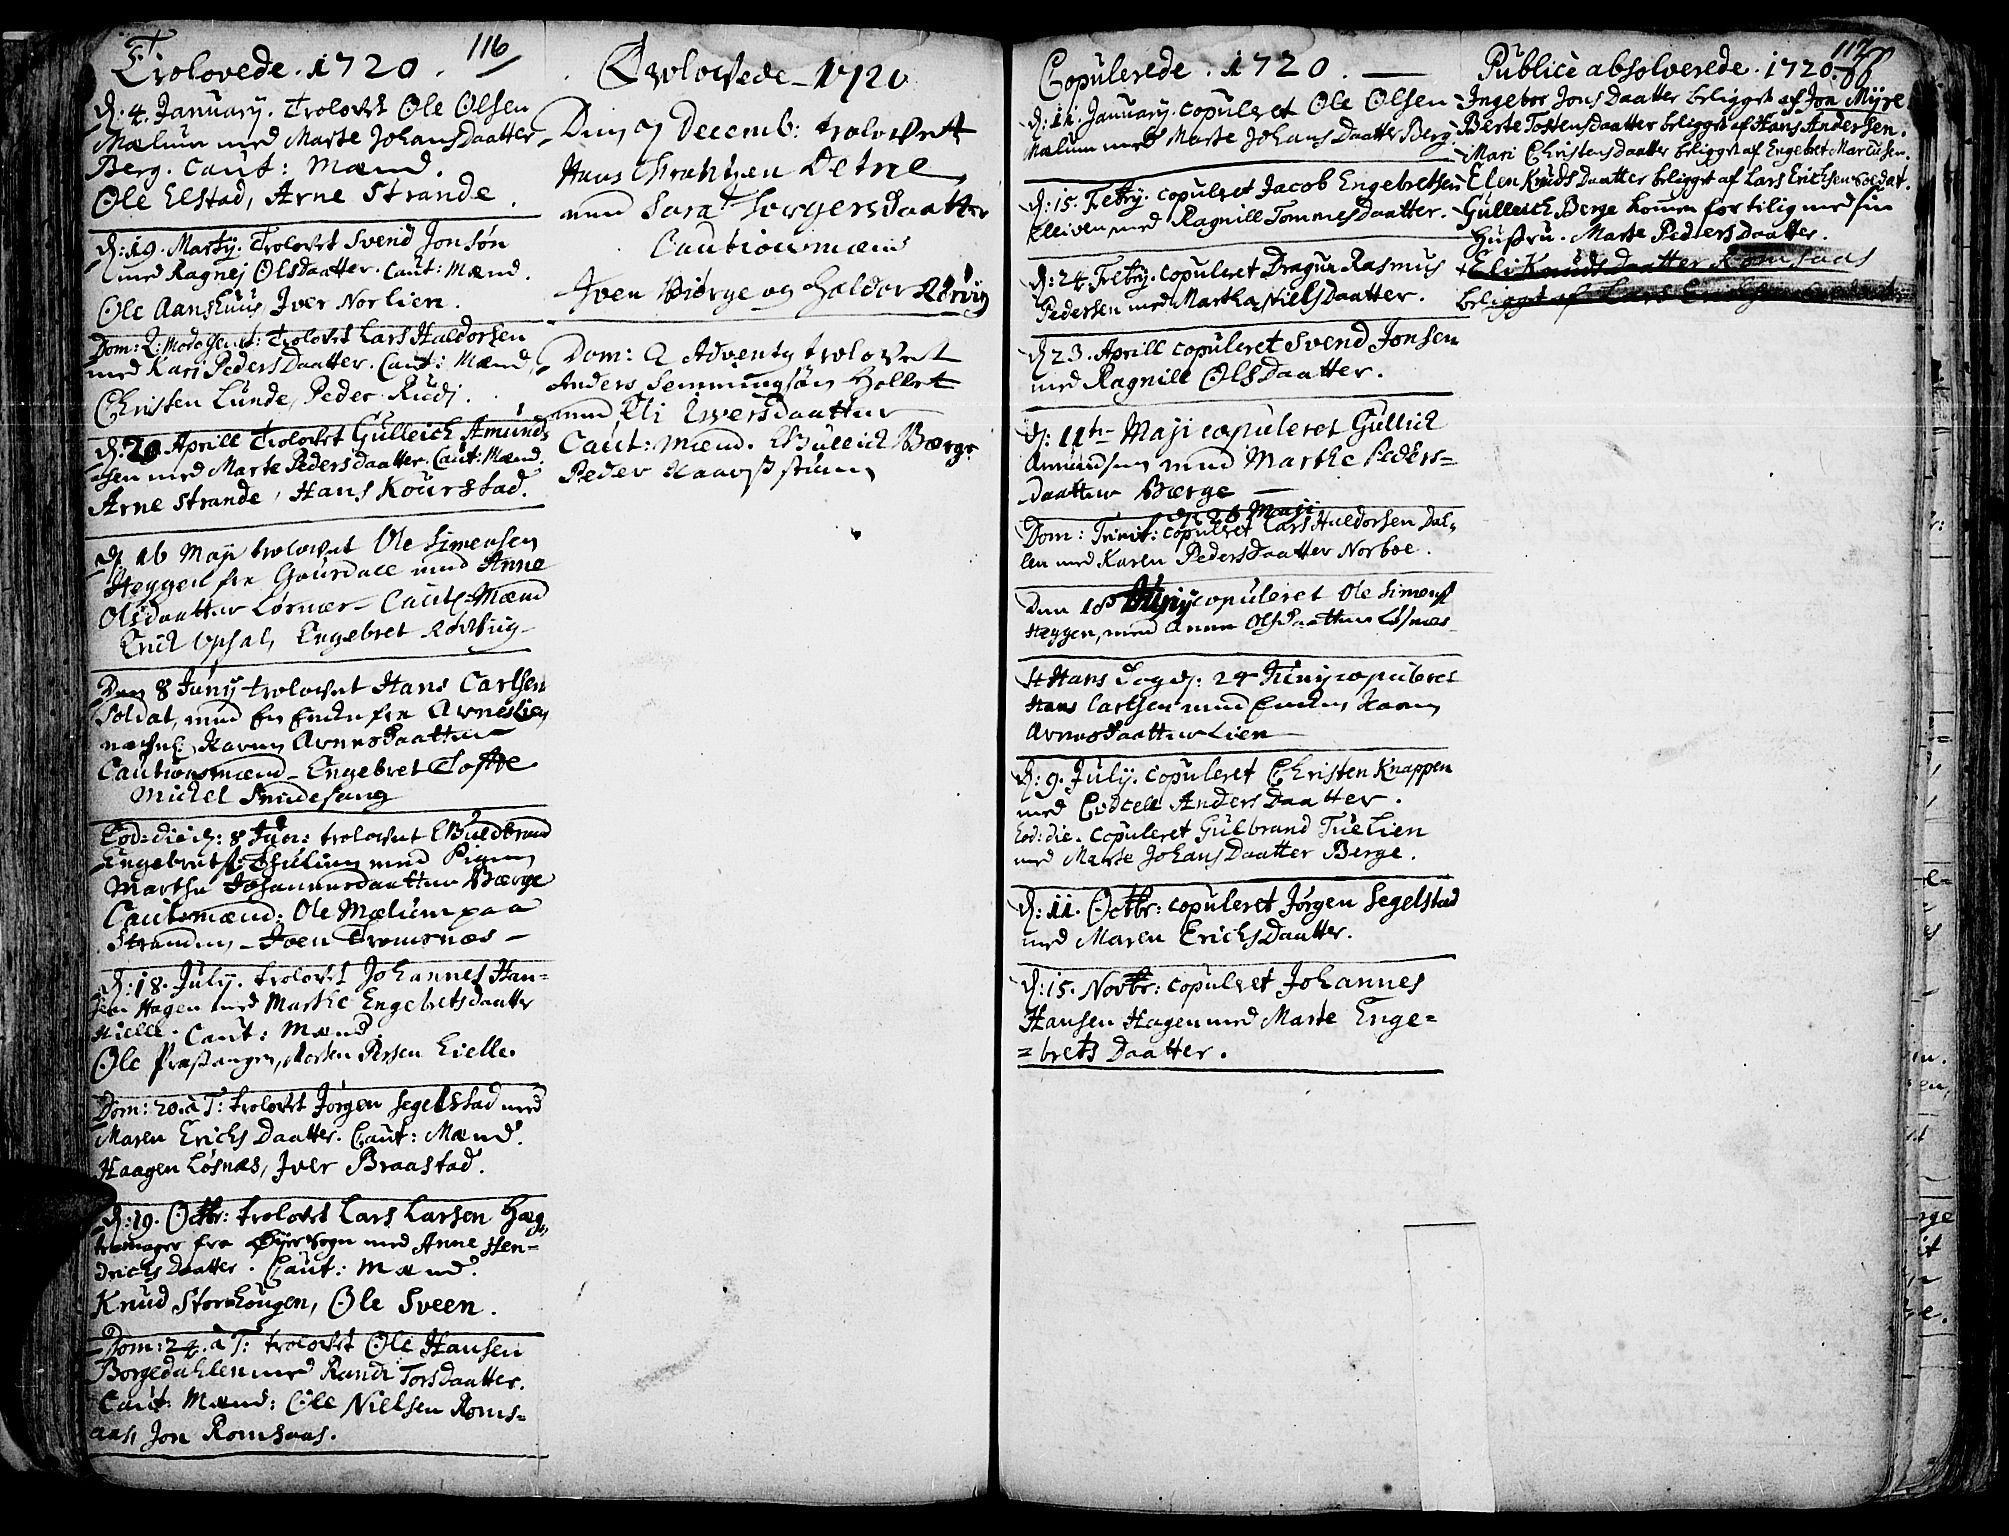 Trolovede . 1720 . 116
d: 4. January. Trolovet Ole Olsen
Mælum med Marte JohansDaatter
Berg. Caut: Mænd.
Ole Elstad, Arne Strande .
d: 19. Martij. Trolovet Svend Jonsøn
med Ragnej OlsDaatter. Caut: Mænd.
Ole Aanshuus Iver Norlien.
Dom: 2: Modo Genit: Trolovet Lars Haldorsen
med Kari PedersDaatter. Caut: Mænd,
Christen Lunde, Peder Rudj.
d: 20 Aprill Trolovet Gulleich Amunds
sen med Marte PedersDaatter. Caut: Mænd.
Arne Strande, Hans Kourstad.
d 16 Maji trolovet Ole Simensen
Heggen fra Gausdall med Anne
Olsdaatter Løsnæs - Caut: Mænd
Erich Opsal, Engebret Rørvig
Den 8 Junij trolovet Hans Carlsen
Soldat, med En Encke fra Arneslien
nafnl: Karen Arnesdaatter
Cautionsmænd - Engebret Tofte
Michel
Eod: die d: 8 Jun: trolovet Guldbrand
Engebrets: Thulien med Pigen
Marthe Johannesdaatter Bærge
Cautsmænd: Ole Mælum paa
Stranden - Joen Tromsnæs -
d: 18. July. trolovet Johannes Han=
sen Hagen med Marthe Engebretsdaatter
Hielle. Caut: Mænd.
Ole Præstangen, Morten Persen Lielle.
Dom: 20. à T: trolovet Jörgen Segelstad med
Maren Erichs Daatter. Caut: Mænd.
Haagen Løsnæs, Iver Braastad.
d: 19. Octbr: trolovet Lars Larsen Hæg
fra Øyer Sogn med Anne Hen=
drichs Daatter. Caut: Mænd.
Knud Storehougen, Ole Sveen.
Dom: 24. à T: trolovet Ole Hansen
Borgedahlen med Randi TorsDaatter.
Caut: Mænd: Ole Nielsen Roms=
aas, Jon Romsaas.
Trolovede - 1720
Den 7 Decemb: trolovett
Hans Frantzen Detne
med Sara Torgersdaatter
Cautionsmænd
Iven Biørge og Haldor Rørvig
Dom: 2 Adventg trolovett
Anders Semmingsøn Hollet
med Eli Iversdaatter
Caut: Mænd. Gullich Bærge
Peder
Copulerede . 1720 . —
d: 11. January. copuleret Ole Olsen
Mælum med Marte JohansDaatter Berg.
d: 15. Febry. copuleret Jacob Engebretsen
Kleven med Ragnill TommesDaatter.
d: 24 Febry. copuleret Dragun Rasmus
Pedersen med Martha NielsDaatter.
d 23. Aprill copuleret Svend Jonsen
med Ragnill OlsDaatter.
d: 11te Maji copuleret Gullich
Amundsen med Marthe Peders=
daatter Bærge —
d: 26 Maji
Dom: Trinit: copuleret Lars Haldorsen Dal=
len med Karen PedersDaatter Norboe.
Den 18 Junij copuleret Ole Simens:
Heggen, med Anne Olsdaatter Løsnæs
St Hans Dag d: 24 Junij copuleret
Hans Carlsen med Encken Karen
Arnesdaatter Lien
d: 9. July. copuleret Christen Knappen
med AndersDaatter.
Eod: die. copuleret Gulbrand Tuelien
med Marte JohansDaatter Berge.
d: 11. Octbr: copuleret Jörgen Segelstad
med Maren ErichsDaatter.
d: 15. Novbr: copuleret Johannes
Hansen Hagen med Marte Enge=
=brets Daatter.
117
Publicè absolverede . 1720.
Ingebor JonsDaatter beligget af Jon Myre
Berte TostensDaatter beligget af Hans Andersen.
Mari ChristensDaatter beligget af Engebret Marcusen.
Elen KnudsDaatter beligget af Lars Erichsen Soldat.
Gulleich Berge kommen for tilig med sin
Hustru. Marte PedersDaatter.
+ Eli KnudsDaatter Romsaas
beligget af Lars Erichsen